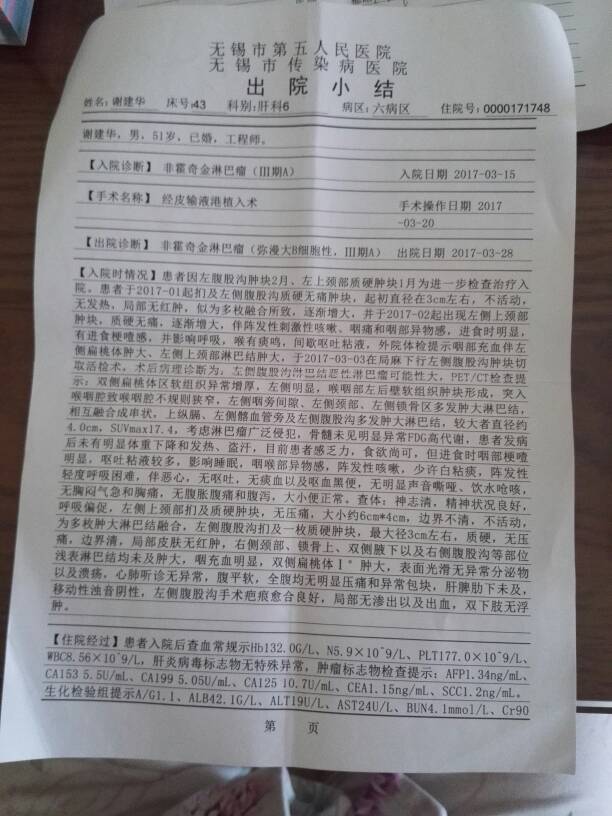 无锡市第五人民医院
无锡市传染病医院
出院小结
姓名:谢建华 床号:43 科别:肝科6 病区:六病区 住院号:0000171748
谢建华，男，51岁，已婚，工程师。
【入院诊断】 非霍奇金淋巴瘤（III期A） 入院日期 2017-03-15
【手术名称】 经皮输液港植入术 手术操作日期 2017
-03-20
【出院诊断】 非霍奇金淋巴瘤（弥漫大B细胞性，III期A） 出院日期 2017-03-28
【入院时情况】患者因左腹股沟肿块2月、左上颈部质硬肿块1月为进一步检查治疗入
院。患者于2017-01起扪及左侧腹股沟质硬无痛肿块，起初直径在3cm左右，不活动，
无发热，局部无红肿，似为多枚融合所致，逐渐增大，并于2017-02起出现左侧上颈部
肿块，质硬无痛，逐渐增大，伴阵发性刺激性咳嗽、咽痛和咽部异物感，进食时明显，
有进食梗噎感，并影响呼吸，喉有痰鸣，间歇呕吐粘液。外院体检提示咽部充血伴左
侧扁桃体肿大、左侧上颈部淋巴结肿大，于2017-03-03在局麻下行左侧腹股沟肿块切
取活检术，术后病理诊断为：左侧腹股沟淋巴结恶性淋巴瘤可能性大，PET/CT检查提
示：双侧扁桃体区软组织异常增厚，左侧明显，喉咽部左后壁软组织肿块形成，突入
喉咽腔致喉咽腔不规则狭窄，左侧咽旁间隙、左侧颈部、左侧锁骨区多发肿大淋巴结，
相互融合成串状，上纵膈、左侧髂血管旁及左侧腹股沟多发肿大淋巴结，较大者直径约
4.0cm，SUVmax17.4，考虑淋巴瘤广泛侵犯，骨髓未见明显异常FDG高代谢，患者发病
后未有明显体重下降和发热、盗汗，目前患者感乏力，食欲尚可，但进食时咽部梗噎
明显，呕吐粘液较多，影响睡眠，咽喉部异物感，阵发性咳嗽，少许白粘痰，阵发性
轻度呼吸困难，伴恶心，无呕吐，无痰血以及呕血黑便，无明显声音嘶哑、饮水呛咳，
无胸闷气急和胸痛，无腹胀腹痛和腹泻，大小便正常。查体：神志清，精神状况良好，
呼吸偏促，左侧上颈部扪及质硬肿块，无压痛，大小约6cm*4cm，边界不清，不活动，
为多枚肿大淋巴结融合，左侧腹股沟扪及一枚质硬肿块，最大径3cm左右，质硬，无压
痛，边界清，局部皮肤无红肿，右侧颈部、锁骨上、双侧腋下以及右侧腹股沟等部位
浅表淋巴结均未及肿大，咽充血明显，双侧扁桃体I°肿大，表面光滑无异常分泌物
以及溃疡，心肺听诊无异常，腹平软，全腹均无明显压痛和异常包块，肝脾肋下未及，
移动性浊音阴性，左侧腹股沟手术疤痕愈合良好，局部无渗出以及出血，双下肢无浮
肿。
【住院经过】患者入院后查血常规示Hb132.0G/L、N5.9×10^9/L、PLT177.0×10^9/L、
WBC8.56×10^9/L，肝炎病毒标志物无特殊异常，肿瘤标志物检查提示：AFP1.34ng/mL、
CA153 5.5U/mL、CA199 5.05U/mL、CA125 10.7U/mL、CEA1.15ng/mL、SCC1.2ng/mL。
生化检验组提示A/G1.1、ALB42.1G/L、ALT19U/L、AST24U/L、BUN4.1mmol/L、Cr90
第 页